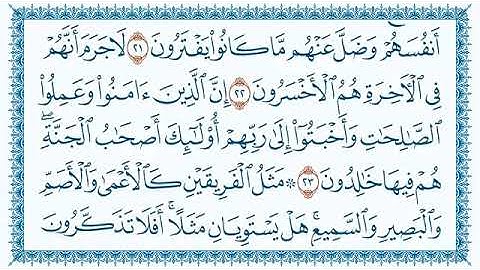 أَنفُسَهُمْ وَضَلَّ عَنْهُم مَّا كَانُوا۟ يَفْتَرُونَ ٢١ لَا جَرَمَ أَنَّهُمْ
فِى ٱلْـَٔاخِرَةِ هُمُ ٱلْأَخْسَرُونَ ٢٢ إِنَّ ٱلَّذِينَ ءَامَنُوا۟ وَعَمِلُوا۟
ٱلصَّـٰلِحَـٰتِ وَأَخْبَتُوٓا۟ إِلَىٰ رَبِّهِمْ أُو۟لَـٰٓئِكَ أَصْحَـٰبُ ٱلْجَنَّةِ ۖ
هُمْ فِيهَا خَـٰلِدُونَ ٢٣ ۞ مَثَلُ ٱلْفَرِيقَيْنِ كَٱلْأَعْمَىٰ وَٱلْأَصَمِّ
وَٱلْبَصِيرِ وَٱلسَّمِيعِ ۚ هَلْ يَسْتَوِيَانِ مَثَلًا ۚ أَفَلَا تَذَكَّرُونَ